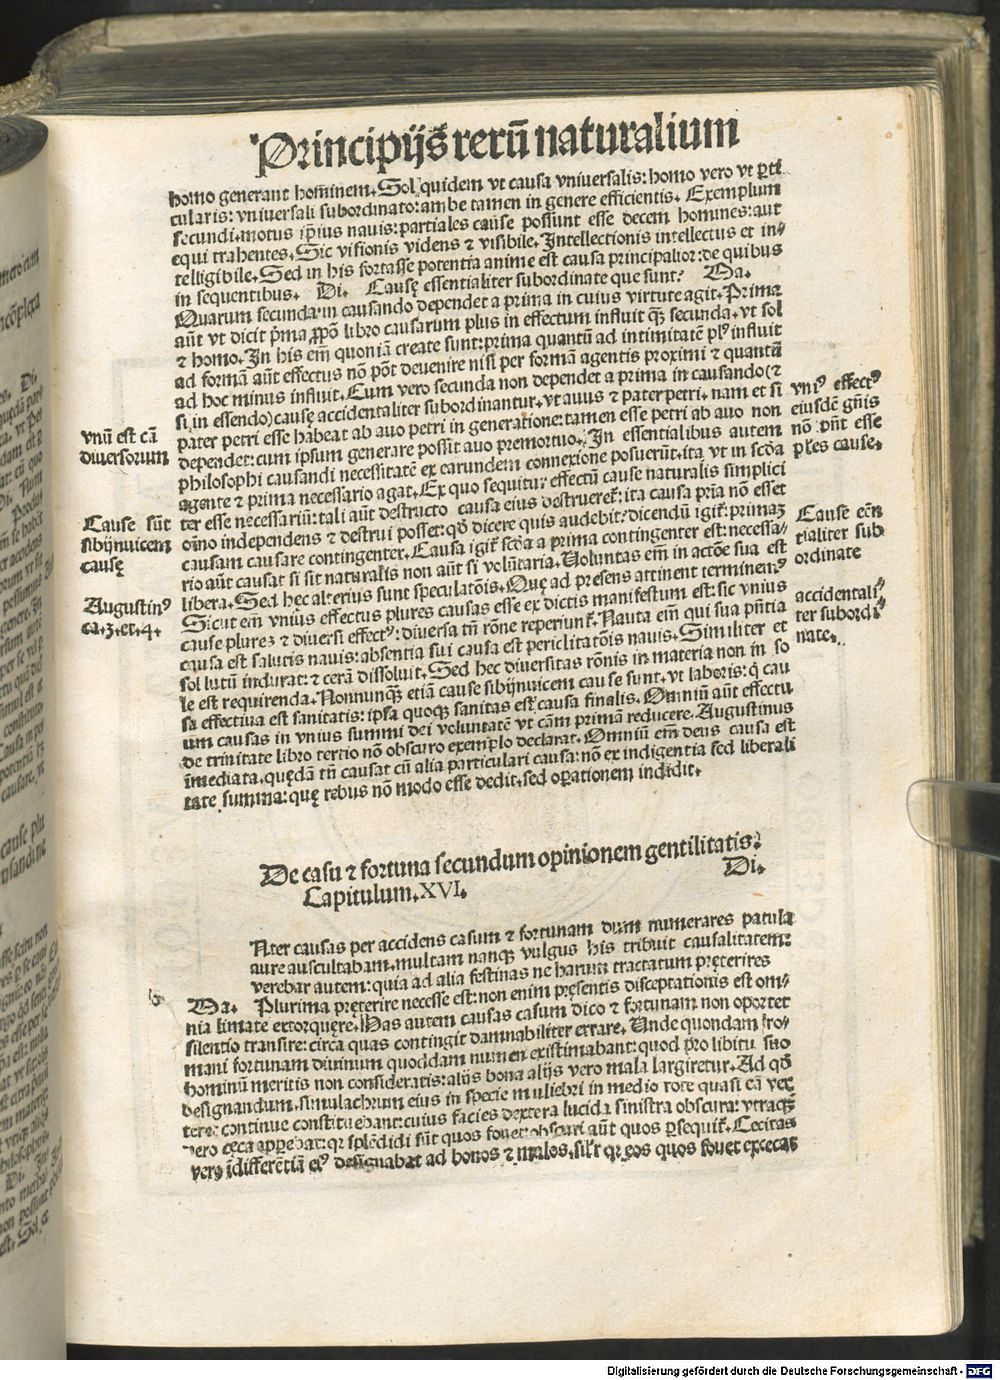 Principijs rerū naturalium
homo generant hominem. Sol quidem vt causa vniuersalis: homo vero vt ꝑti
cularis: vniuersali subordinato: ambe tamen in genere efficientis. Exemplum
secundi. motus ipsius nauis: partiales cause possunt esse decem homines: aut
equi trahentes. Sic visionis videns & visibile. Intellectionis intellectus et in⸗
telligibile. Sed in his fortasse potentia anime est causa principalior: de quibus
in sequentibus. Di. Causę essentialiter subordinate que sunt? Ma.
Quarum secunda in causando dependet a prima in cuius virtute agit. Prima
aūt vt dicit p̄ma ꝓpō libro causarum plus in effectum influit qȝ secunda. vt sol
& homo. In his em̄ quoniā create sunt: prima quantū ad intimitatē plꝰ influit
ad formā aūt effectus nō pōt deuenire nisi per formā agentis proximi & quantū
ad hoc minus influit. Cum vero secunda non dependet a prima in causando (&
si in essendo) causę accidentaliter subordinantur. vt auus & pater petri. nam et si
pater petri esse habeat ab auo petri in generatione: tamen esse petri ab auo non
dependet: cum ipsum generare possit auo premortuo. In essentialibus autem
philosophi causandi necessitatē ex earundem connexione posuerūt. ita vt in scd̄a
agente & prima necessario agat. Ex quo sequitur effectū cause naturalis simplici
ter esse necessariū: tali aūt destructo causa eius destrueret̄: ita causa pria nō esset
oīno independens & destrui posset: qd̄ dicere quis audebit? dicendū igit̄: primaȝ
causam causare contingenter. Causa igit̄ scd̄a a prima contingenter est: necessa⸗
rio aūt causat si sit naturalis non aūt si volūtaria. Voluntas em̄ in actōe sua est
libera. Sed hęc alterius sunt speculatōis. Quę ad presens attinent terminemꝰ
Sicut em̄ vnius effectus plures causas esse ex dictis manifestum est: sic vnius
cause plures & diuersi effectꝰ: diuersa tn̄ rōne reperiunt̄. Nauta em̄ qui sua pn̄tia
causa est salutis nauis: absentia sui causa est periclitatōis nauis. Similiter et
sol lutū indurat: & cerā dissoluit. Sed hec diuersitas rōnis in materia non in so
le est requirenda. Nonnunqȝ etiā cause sibijnuicem cause sunt. vt labor is: q̄ cau
sa effectiua est sanitatis: ipsa quoqȝ sanitas est causa finalis. Omniū aūt effectu
um causas in vnius summi dei voluntatē vt cām primā reducere. Augustinus
de trinitate libro tertio nō obscuro exemplo declarat. Omniū em̄ deus causa est
īmediata. quędā tn̄ causat cū alia particulari causa: nō ex indigentia sed liberali
tate summa: quę rebus nō modo esse dedit. sed oꝑationem indidit.
vnū est cā
diuersorum
Cause sūt
sibijnuicem
causę
Augustinꝰ
ca. 3. et. 4.
vniꝰ effectꝰ
eiusdē gn̄is
nō pn̄t esse
ples cause.
Cause eēn
tialiter sub
ordinate
accidentali⸗
ter subordi⸗
nate.
De casu & fortuna secundum opinionem gentilitatis.
Capitulum. XVI. Di.
Nter causas per accidens casum & fortunam dum numerares patula
aure auscultabam. multam nanqȝ vulgus his tribuit causalitatem:
verebar autem: quia ad alia festinas ne harum tractatum pręterires
Ma. Plurima pręterire necesse est: non enim pręsentis disceptationis est om⸗
nia limate extorquęre. Has autem causas casum dico & fortunam non oportet
silentio transire: circa quas contingit damnabiliter errare. Unde quondam ro⸗
mani fortunam diuinum quoddam numen existimabant: quod pro libitu suo
hominū meritis non consideratis: alijs bona alijs vero mala largiretur. Ad qd̄
designandum. simulachrum eius in specie muliebri in medio rote quasi eā ver
tere continue constituebant: cuius facies dextera lucida sinistra obscura: vtraqȝ
vero cęca apꝑebat: qr splēdidi sūt quos fouet: obscuri aūt quos ꝑsequit̄. Cecitas
vero īdifferētiā eiꝰ designabat ad bonos & malos. silr qr eos quos fouet excecat
Digitalisierung gefördert durch die Deutsche Forschungsgemeinschaft - DFG